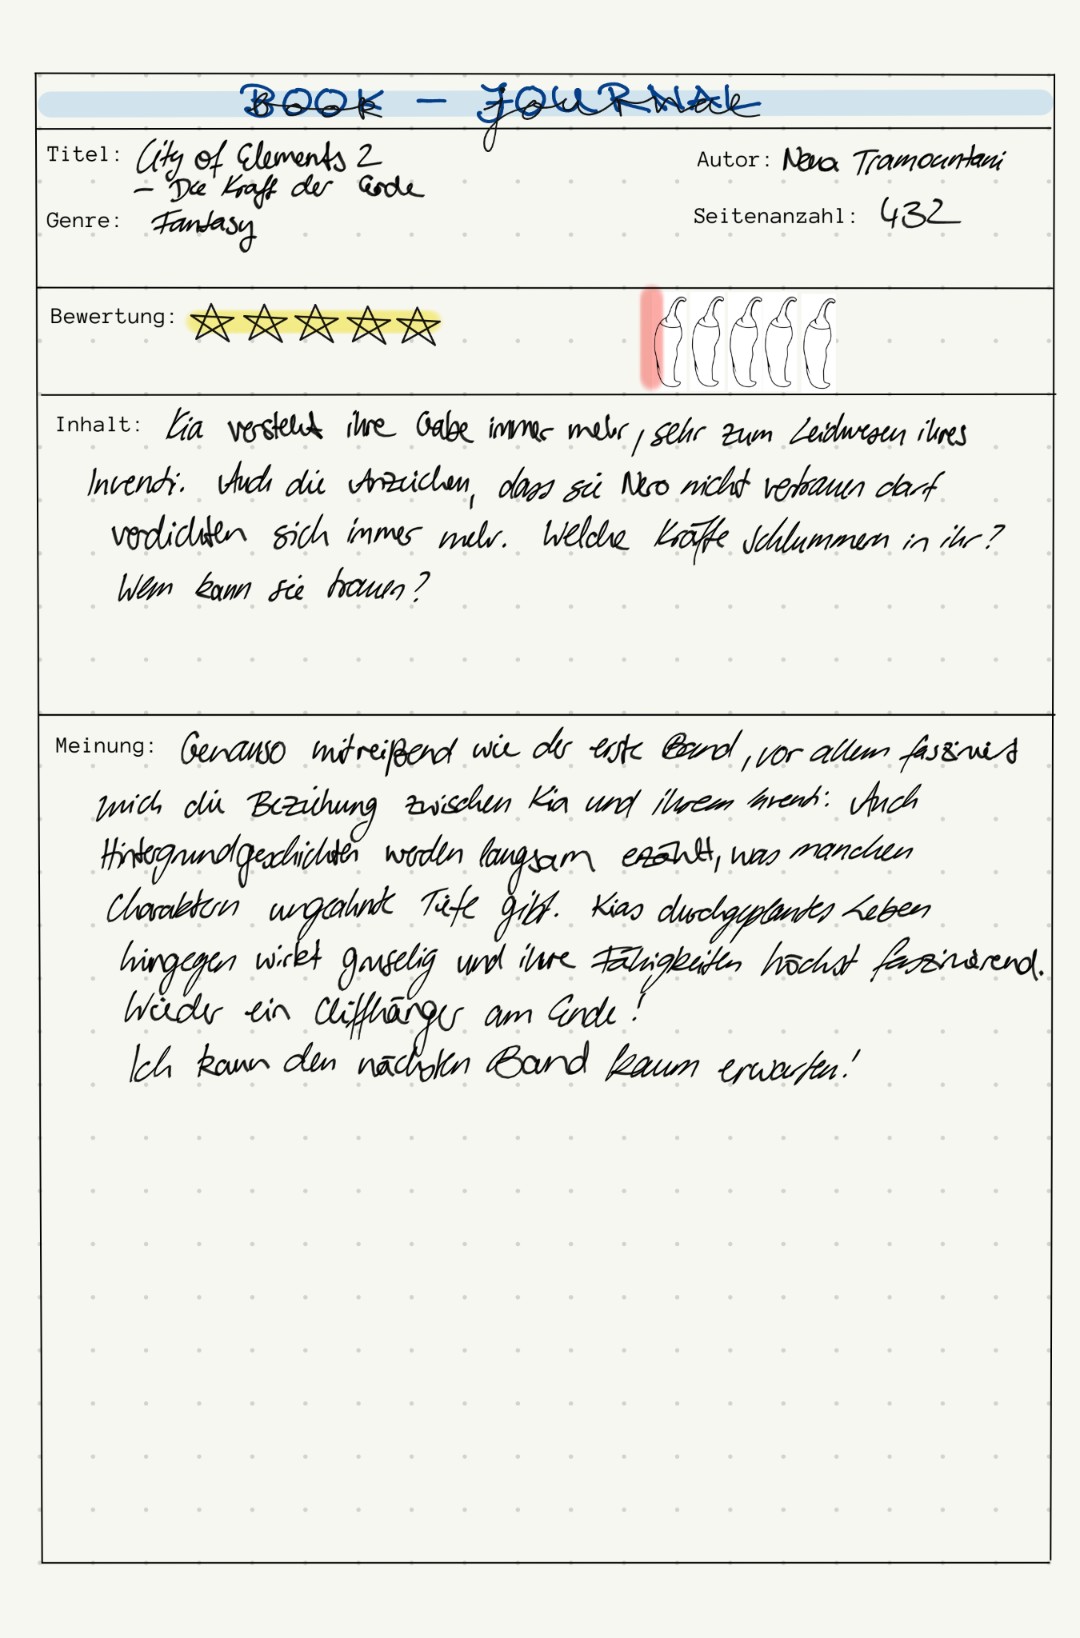 BOOK - JOURNAL
Titel: City of Elements 2
- Die Kraft der Erde
Autor: Nena Tramountani
Genre: Fantasy
Seitenanzahl: 432
Bewertung:
Inhalt: Kia versteht ihre Gabe immer mehr, sehr zum Leidwesen ihres
Inventi. Auch die Anzeichen, dass sie Nero nicht vertrauen darf
verdichten sich immer mehr. Welche Kräfte schlummern in ihr?
Wem kann sie trauen?
Meinung: Genauso mitreißend wie der erste Band, vor allem fasziniert
mich die Beziehung zwischen Kia und ihrem Inventi. Auch
Hintergrundgeschichten werden langsam erzählt, was manchen
Charaktern ungeahnte Tiefe gibt. Kias durchgeplantes Leben
hingegen wirkt gruselig und ihre Fähigkeiten höchst faszinierend.
Wieder ein Cliffhänger am Ende!
Ich kann den nächsten Band kaum erwarten!